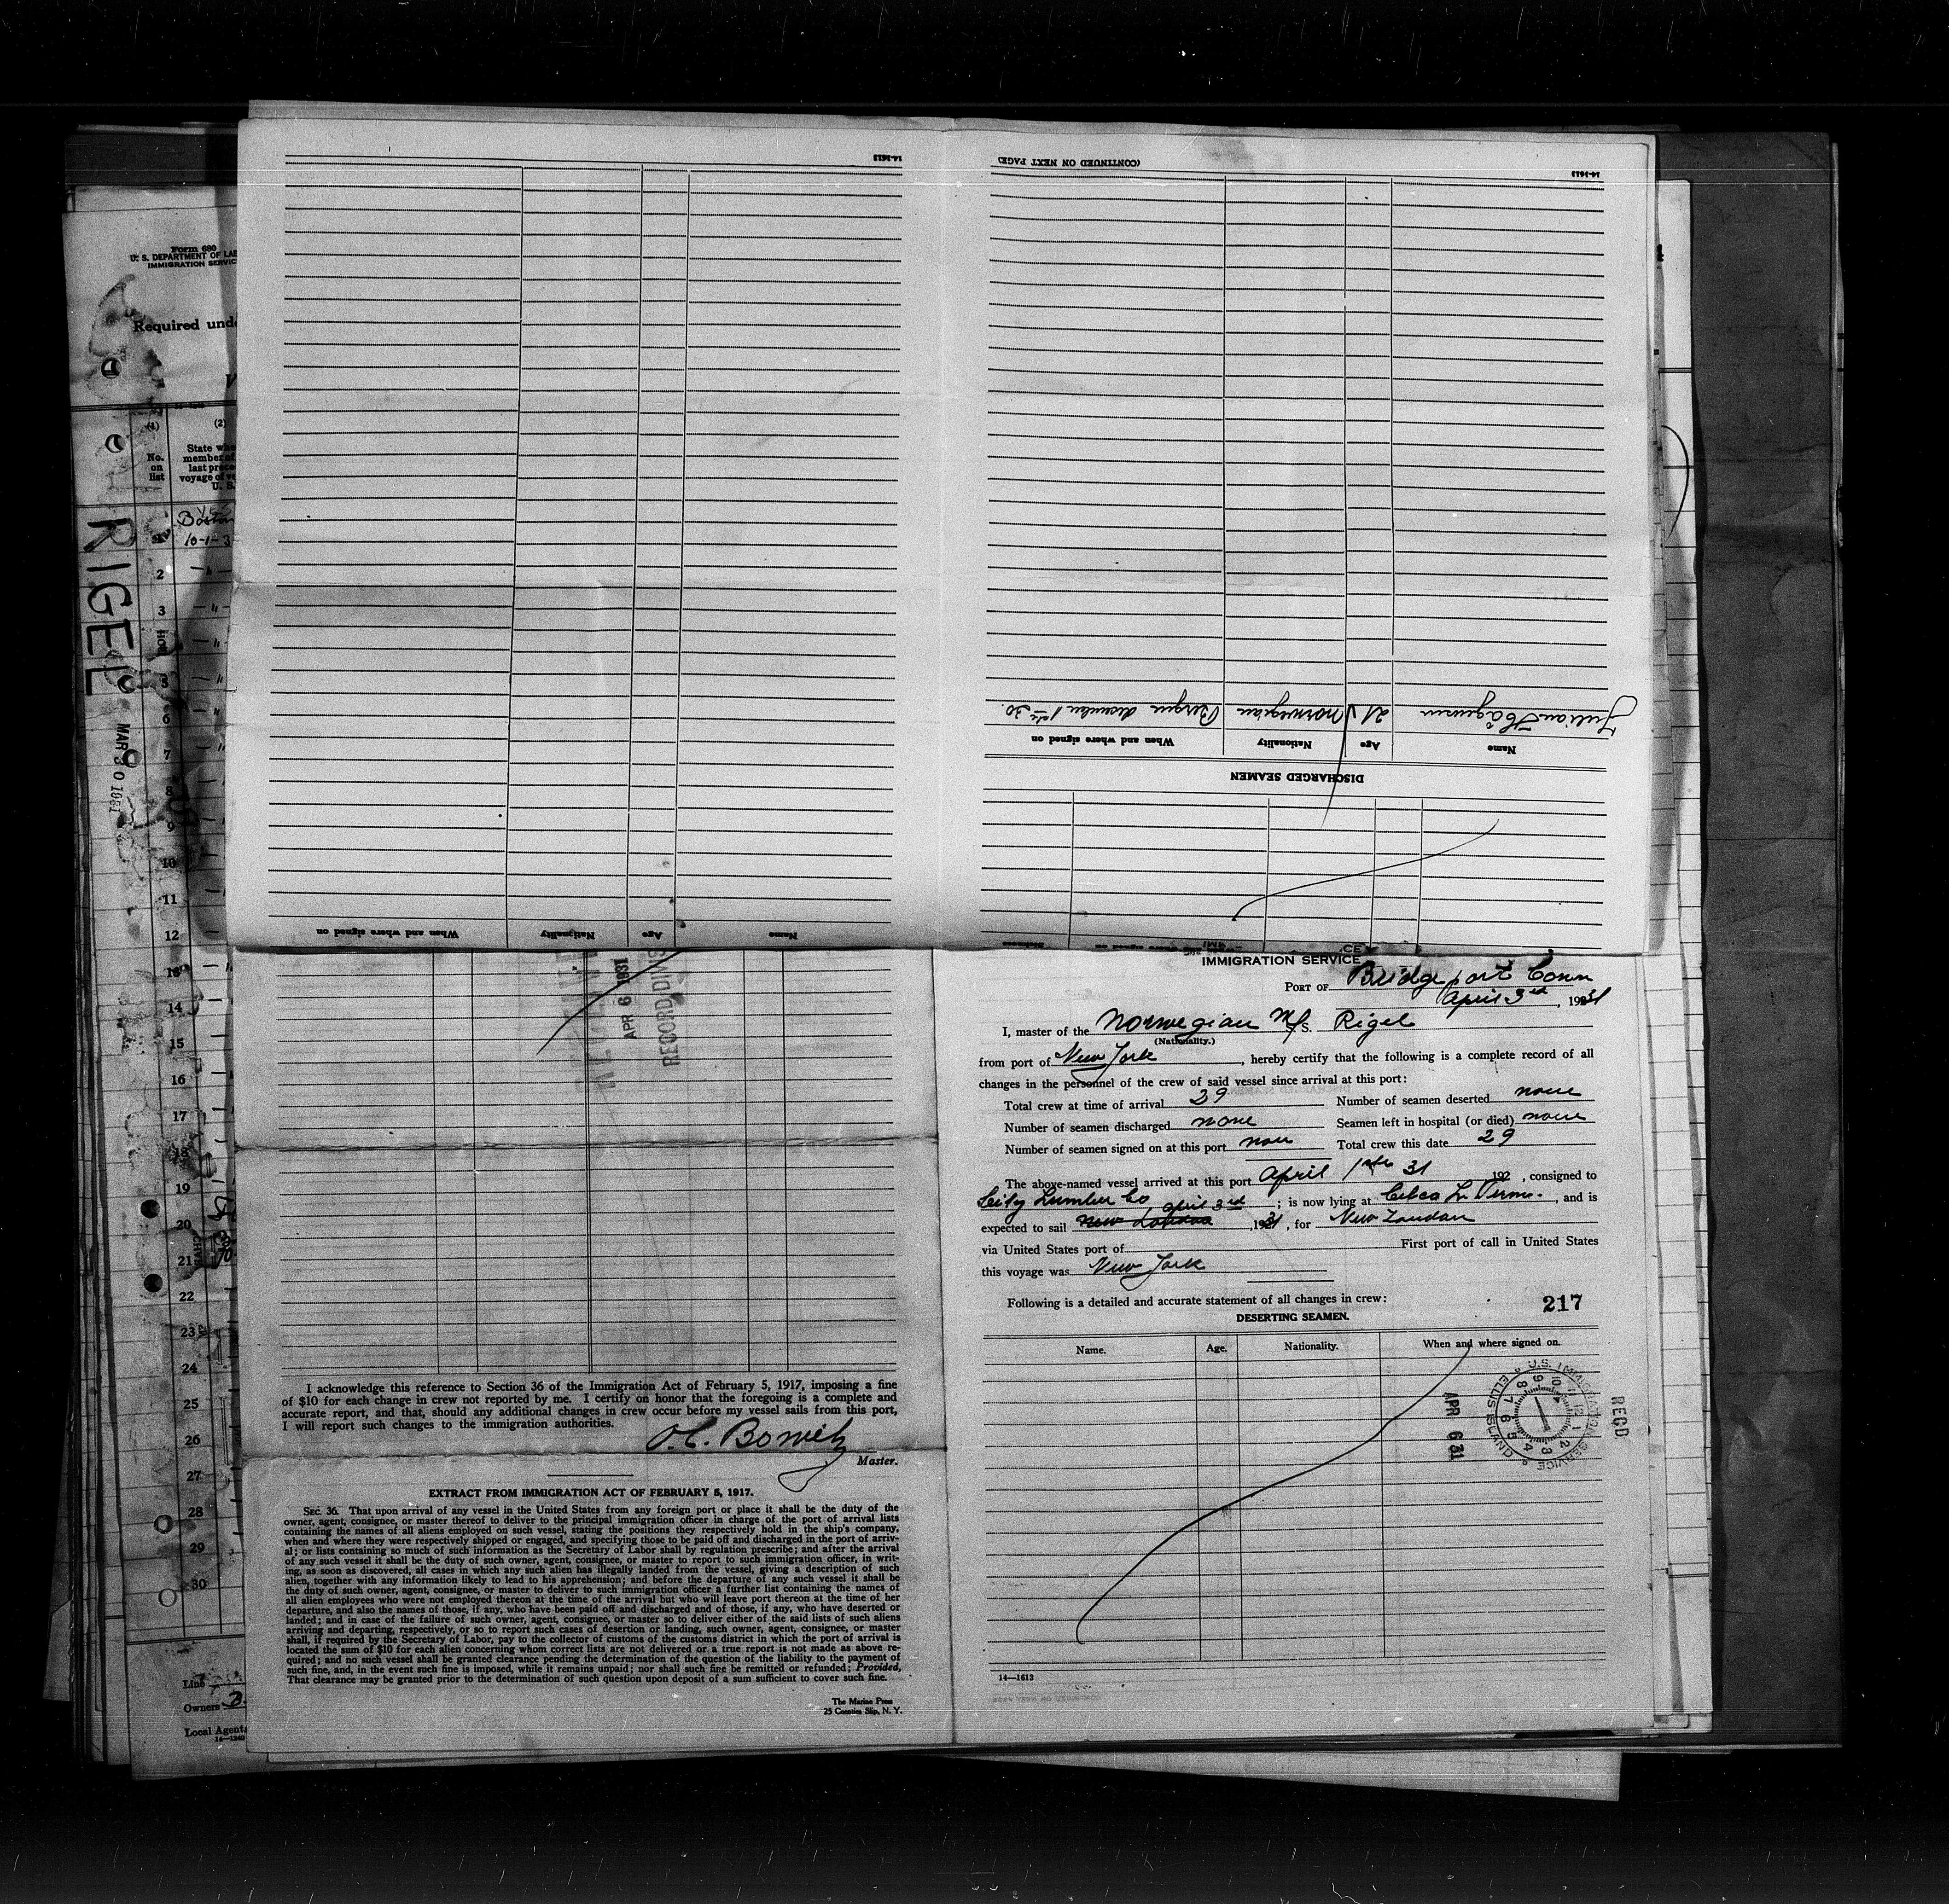 Form 680
U. S. DEPARTMENT OF LAB
IMMIGRATION SERVIC
Required unde
(1) (2)
No. on list
State whe
member of
last prece
voyage of ve
U. S.
Boston
10-1-3
RIGEL
MAR 30 1931
2
3
5
6
7
8
9
10
11
12
13
14
15
16
17
18
19
20
21
22
23
24
25
26
27
28
29
30
Line
Owners
Local Agents
14-1240
14-1613
When and where signed on Nationality Age Name
14-1613
(CONTINUED ON NEXT PAGE)
DISCHARGED SEAMEN
Name Age Nationality When and where signed on
21 norwegian Bergen desember 30.
APR 6 1931
RECORD DIVIS
I acknowledge this reference to Section 36 of the Immigration Act of February 5, 1917, imposing a fine
of $10 for each change in crew not reported by me. I certify on honor that the foregoing is a complete and
accurate report, and that, should any additional changes in crew occur before my vessel sails from this port,
I will report such changes to the immigration authorities.
Master.
EXTRACT FROM IMMIGRATION ACT OF FEBRUARY 5, 1917.
SEC. 36. That upon arrival of any vessel in the United States from any foreign port or place it shall be the duty of the
owner, agent, consignee, or master thereof to deliver to the principal immigration officer in charge of the port of arrival lists
containing the names of all aliens employed on such vessel, stating the positions they respectively hold in the ship's company,
when and where they were respectively shipped or engaged, and specifying those to be paid off and discharged in the port of arriv-
al; or lists containing so much of such information as the Secretary of Labor shall by regulation prescribe; and after the arrival
of any such vessel it shall be the duty of such owner, agent, consignee, or master to report to such immigration officer, in writ-
ing, as soon as discovered, all cases in which any such alien has illegally landed from the vessel, giving a description of such
alien, together with any information likely to lead to his apprehension; and before the departure of any such vessel it shall be
the duty of such owner, agent, consignee, or master to deliver to such immigration officer a further list containing the names of
all alien employees who were not employed thereon at the time of the arrival but who will leave port thereon at the time of her
departure, and also the names of those, if any, who have been paid off and discharged and of those, if any, who have deserted or
landed; and in case of the failure of such owner, agent, consignee, or master so to deliver either of the said lists of such aliens
arriving and departing, respectively, or so to report such cases of desertion or landing, such owner, agent, consignee, or master
shall, if required by the Secretary of Labor, pay to the collector of customs of the customs district in which the port of arrival is
located the sum of $10 for each alien concerning whom correct lists are not delivered or a true report is not made as above re-
quired; and no such vessel shall be granted clearance pending the determination of the question of the liability to the payment of
such fine, and, in the event such fine is imposed, while it remains unpaid; nor shall such fine be remitted or refunded; Provided,
That clearance may be granted prior to the determination of such question upon deposit of a sum sufficient to cover such fine.
The Marine Press
25 Coenties Slip, N. Y.
IMMIGRATION SERVICE
PORT OF Bridgeport Conn
April 3rd, 1931
I, master of the Norwegian M/S. Rigel
(Nationality.)
from port of New York, hereby certify that the following is a complete record of all
changes in the personnel of the crew of said vessel since arrival at this port:
Total crew at time of arrival 29 Number of seamen deserted none
Number of seamen discharged none Seamen left in hospital (or died) none
Number of seamen signed on at this port non Total crew this date 29
The above-named vessel arrived at this port April 1 31 192 , consigned to
City Lumber Co ; is now lying at , and is
expected to sail April 3rd New London , 1931, for New London
via United States port of First port of call in United States
this voyage was New York
Following is a detailed and accurate statement of all changes in crew:
217
DESERTING SEAMEN.
Name. Age. Nationality. When and where signed on.
U.S. IMMIGRATION SERVICE ELLIS ISLAND
APR 6 31
RECD
14—1613